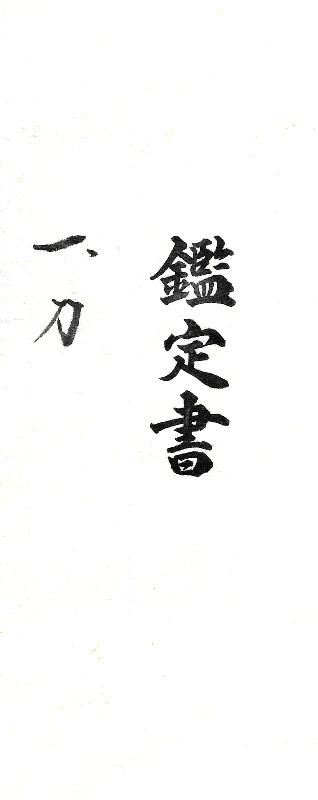 鑑定書
一、刀